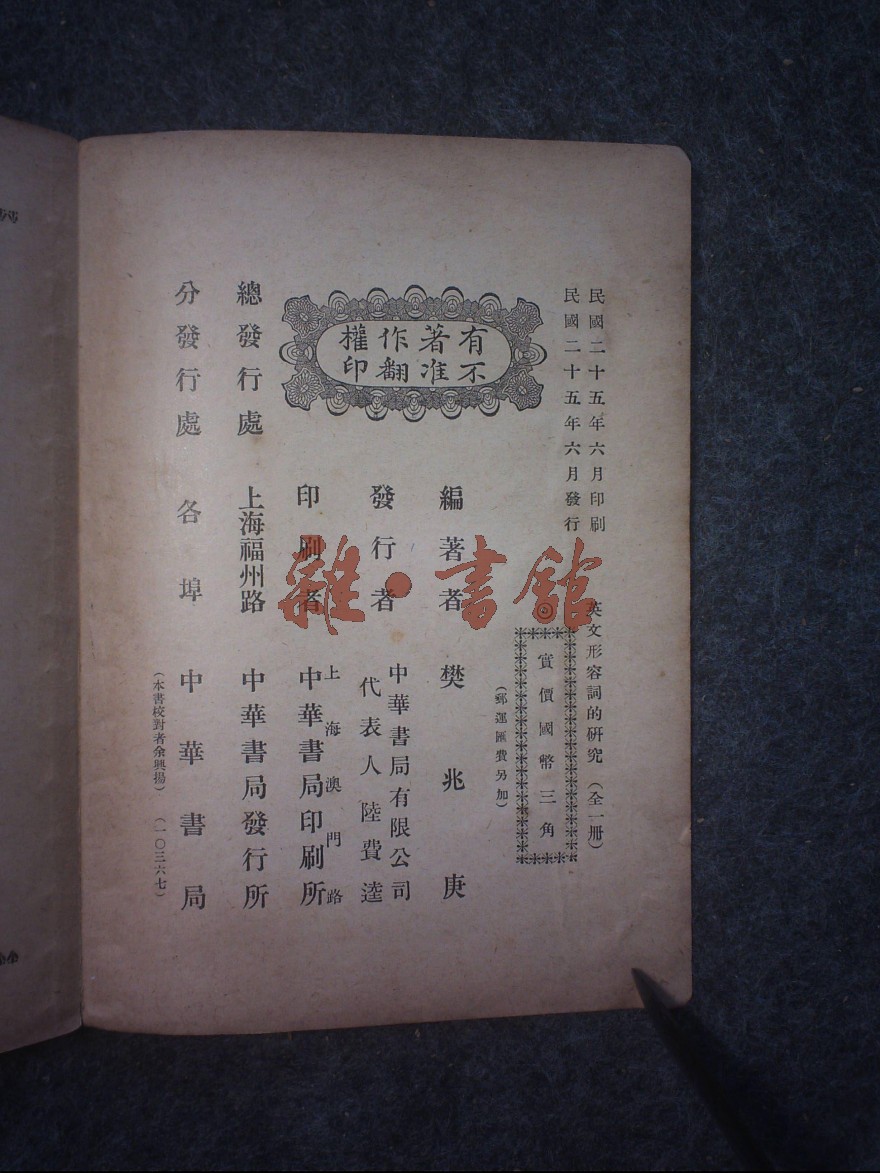 民國二十五年六月印刷
民國二十五年六月發行
英文形容詞的研究（全一册）
實價國幣三角
（郵運匯費另加）
有著作權
不准翻印
編著者 樊兆庚
發行者 中華書局有限公司
代表人陸費逵
印刷者 上海澳門路
中華書局印刷所
總發行處 上海福州路 中華書局發行所
分發行處 各埠 中華書局
（本書校對者余興揚）（一〇三六七）
雜·書館